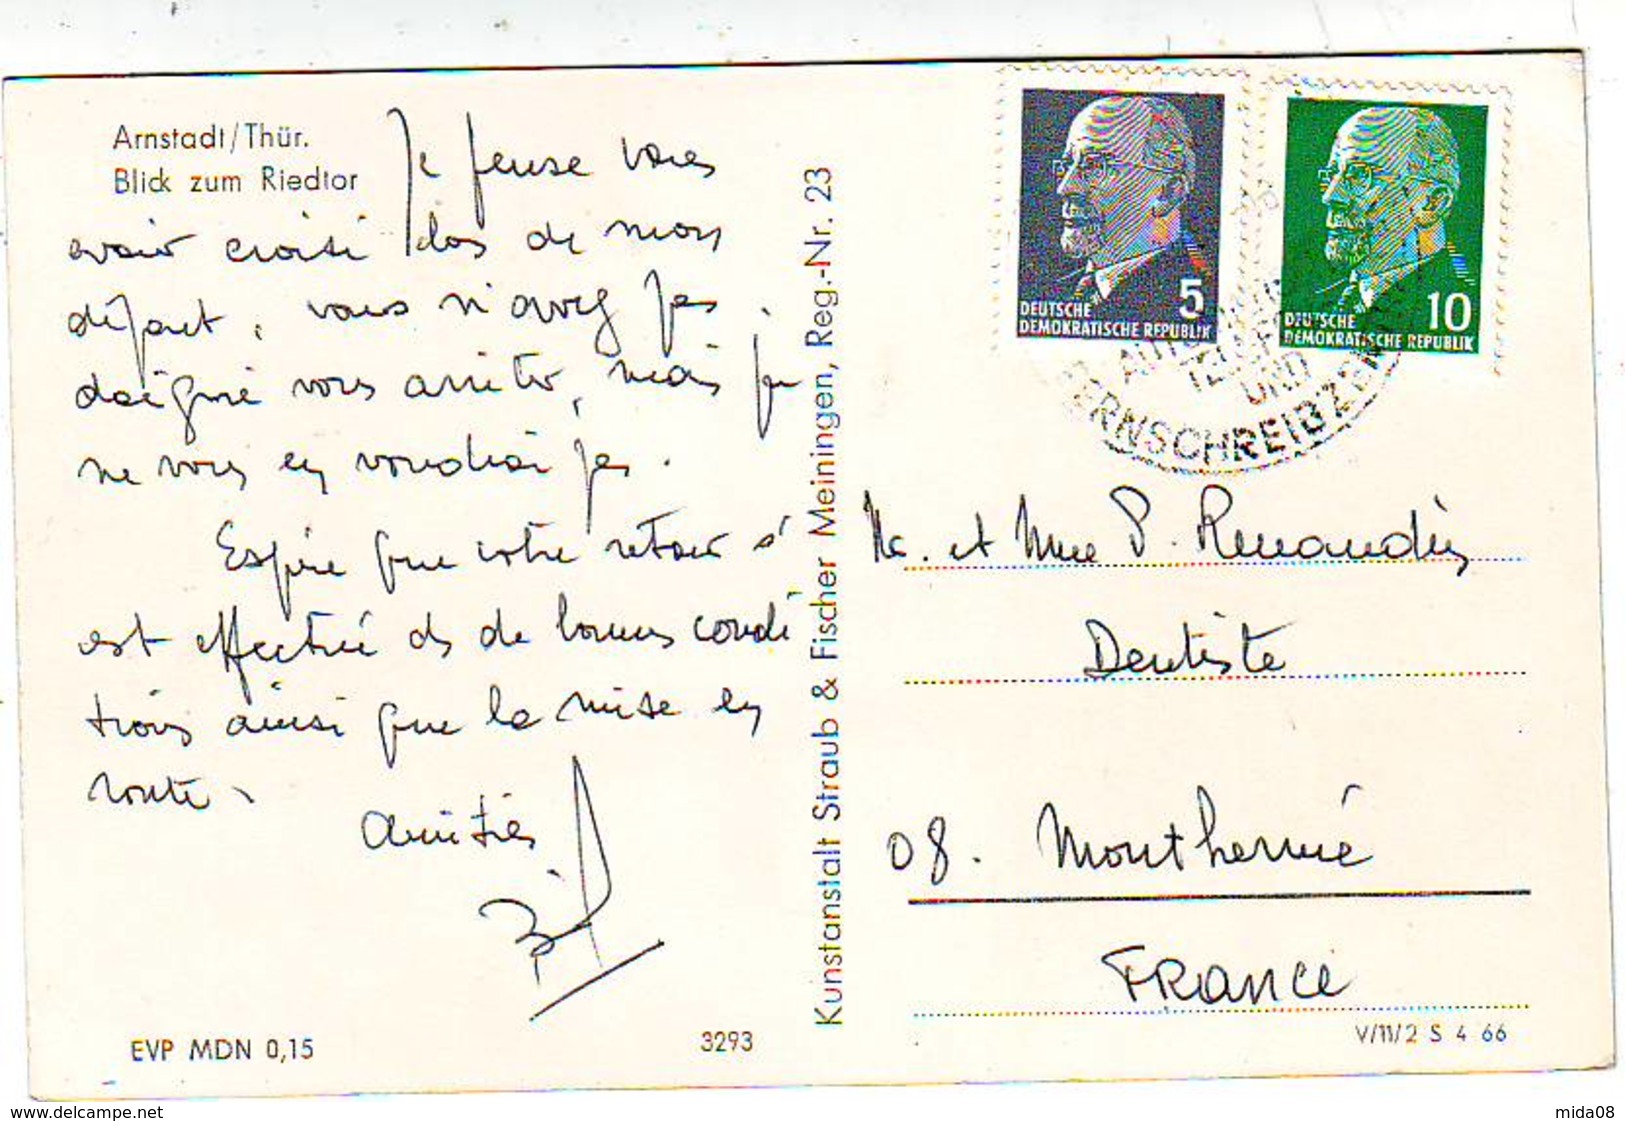 Arnstadt/Thür.
Blick zum Riedtor
Je pense vous
avoir croisi lors de mon
départ, vous n'avez pas
daigné vous arrêter, mais je
ne vous en voudrai pas.
Espère que votre retour s'
est effectué ds de bonnes condi
tions ainsi que la mise en
route.
Amitiés
EVP MDN 0,15
3293
Kunstanstalt Straub & Fischer Meiningen, Reg.-Nr. 23
5
DEUTSCHE
DEMOKRATISCHE REPUBLIK
10
DEUTSCHE
DEMOKRATISCHE REPUBLIK
UND
FERNSCHREIBZEN
M. et Mme P. Renaudin
Dentiste
08. Monthermé
FRANCE
V/11/2 S 4 66
www.delcampe.net
mida08